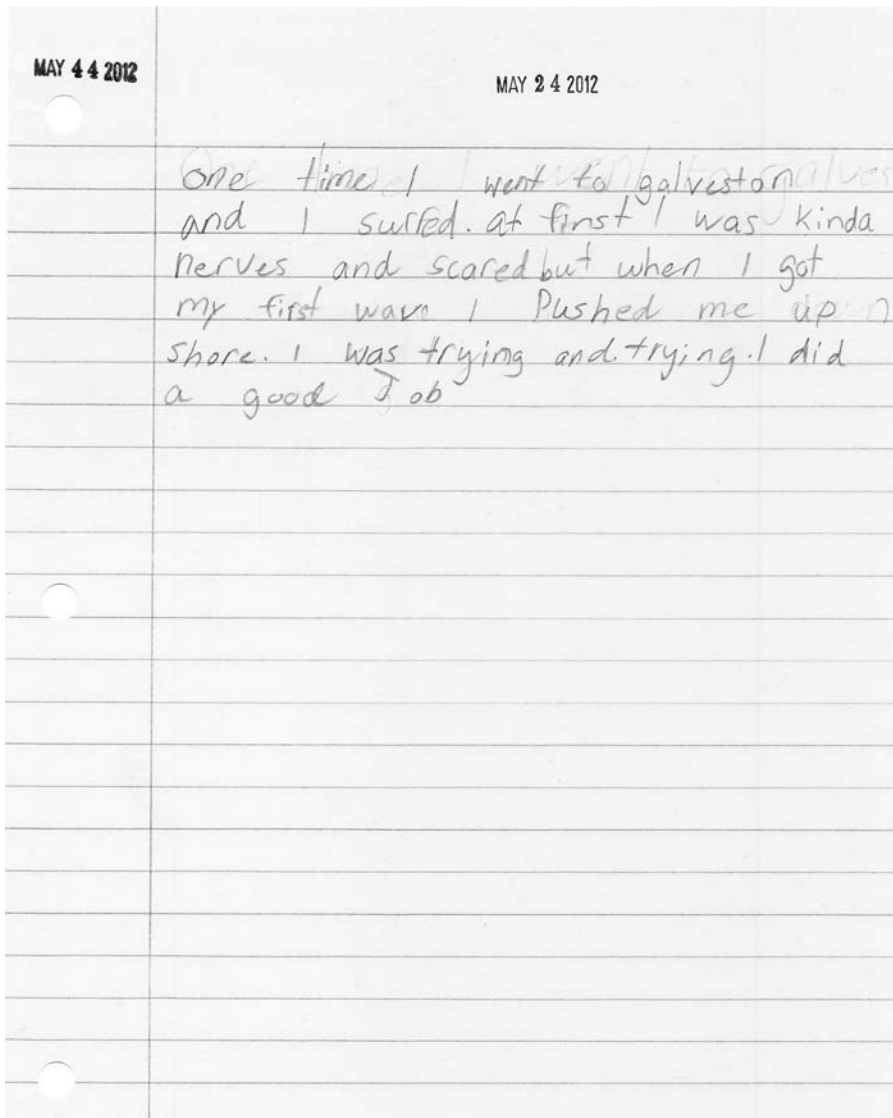 MAY 44 2012
MAY 24 2012
One time I went to galveston
and I surfed. at first I was kinda
nerves and scared but when I got
my first wave I Pushed me up
shore. I was trying and. trying. I did
a good Job